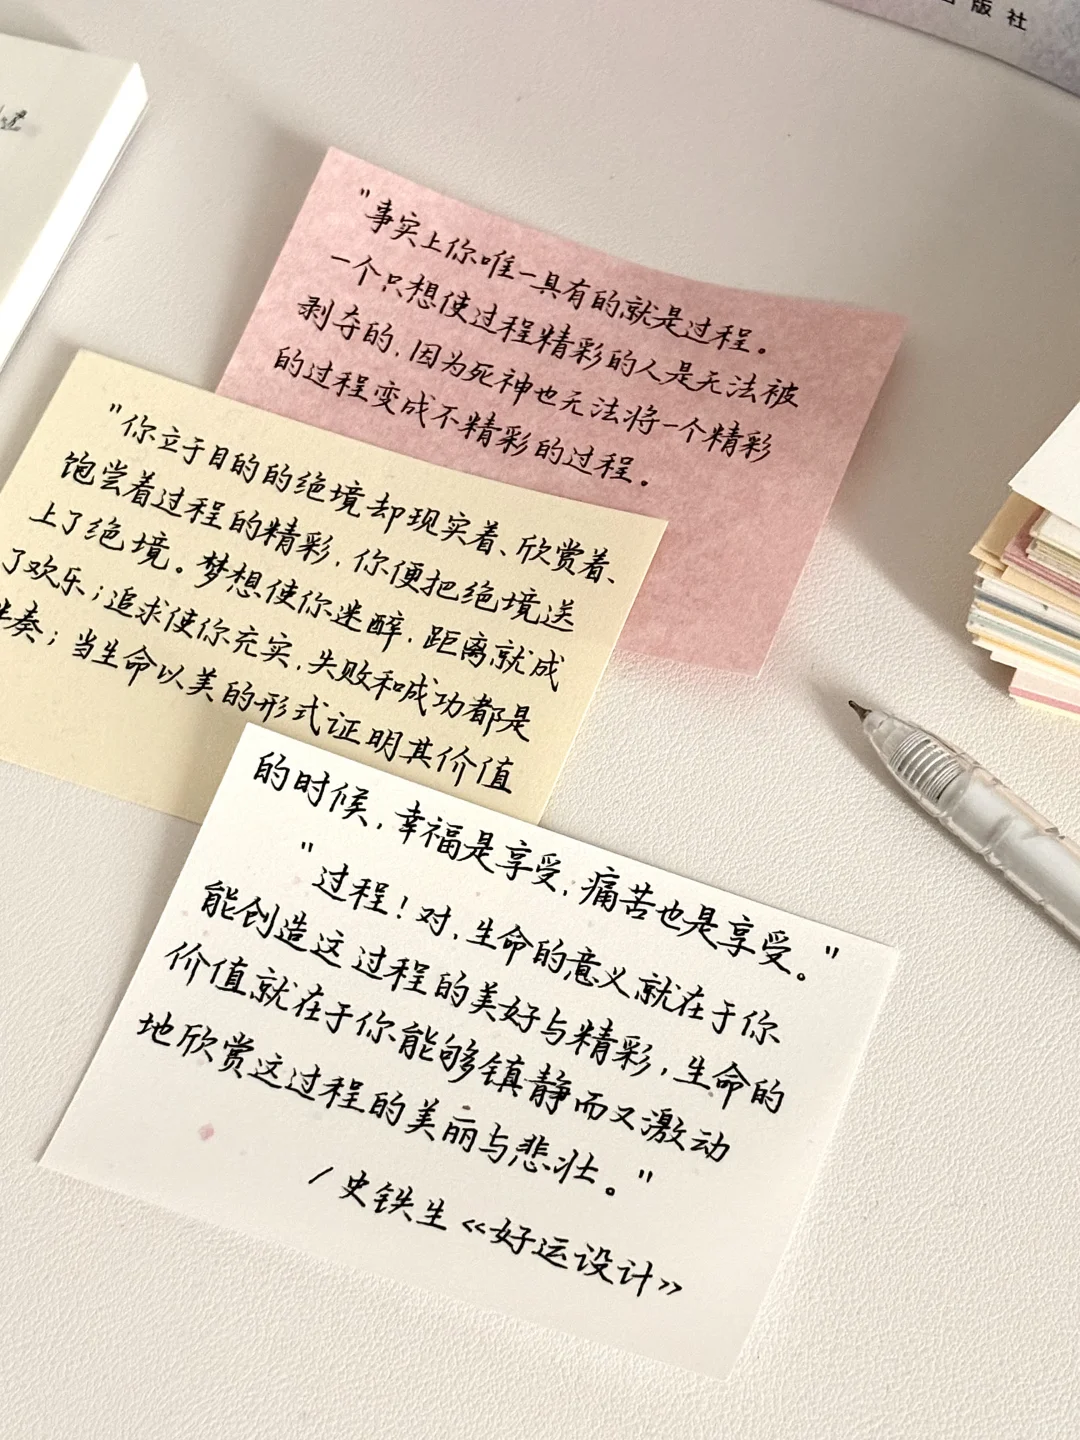 版社
"事实上你唯一具有的就是过程。
一个只想使过程精彩的人是无法被
剥夺的，因为死神也无法将一个精彩
的过程变成不精彩的过程。
"你立于目的的绝境却现实着、欣赏着、
饱尝着过程的精彩，你便把绝境送
上了绝境。梦想使你迷醉，距离就成
了欢乐；追求使你充实，失败和成功都是
伴奏；当生命以美的形式证明其价值
的时候，幸福是享受，痛苦也是享受。"
"过程！对，生命的意义就在于你
能创造这过程的美好与精彩，生命的
价值就在于你能够镇静而又激动
地欣赏这过程的美丽与悲壮。"
/史铁生《好运设计》